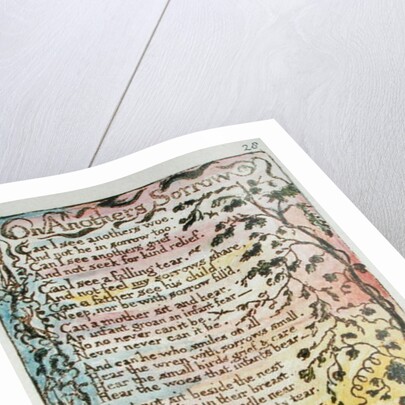 28
On Anothers Sorrow
Can I see anothers woe,
And not be in sorrow too.
Can I see anothers grief,
And not seek for kind relief.
Can I see a falling tear,
And not feel my sorrows share,
Can a father see his child,
Weep, nor be with sorrow fill'd.
Can a mother sit and hear,
An infant groan an infant fear
No no never can it be,
Never never can it be.
And can he who smiles on all
Hear the wren with sorrows small,
Hear the small birds grief & care
Hear the woes that infants bear
And not sit beside the nest